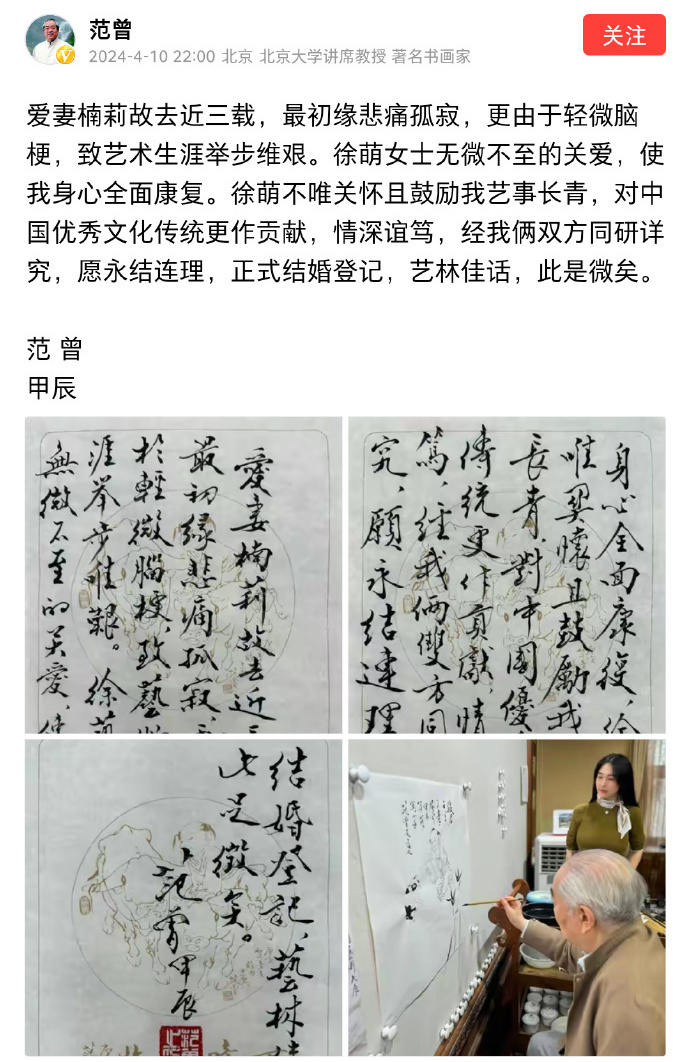 范曾
关注
2024-4-10 22:00 北京 北京大学讲席教授 著名书画家
爱妻楠莉故去近三载，最初缘悲痛孤寂，更由于轻微脑
梗，致艺术生涯举步维艰。徐萌女士无微不至的关爱，使
我身心全面康复。徐萌不唯关怀且鼓励我艺事长青，对中
国优秀文化传统更作贡献，情深谊笃，经我俩双方同研详
究，愿永结连理，正式结婚登记，艺林佳话，此是微矣。
范 曾
甲辰
愛妻楠莉故去近三
最初缘悲痛孤寂，
於輕微腦梗，致藝
涯举步唯艱。徐萌
無微不至的关愛，使
身心全面康復，徐
唯関懷且鼓勵我
長青，對中國優
傳統更作貢獻，情
篤，经我俩雙方同
究，願永结連理
结婚登记，藝林
此是徵矣。
范曾甲辰